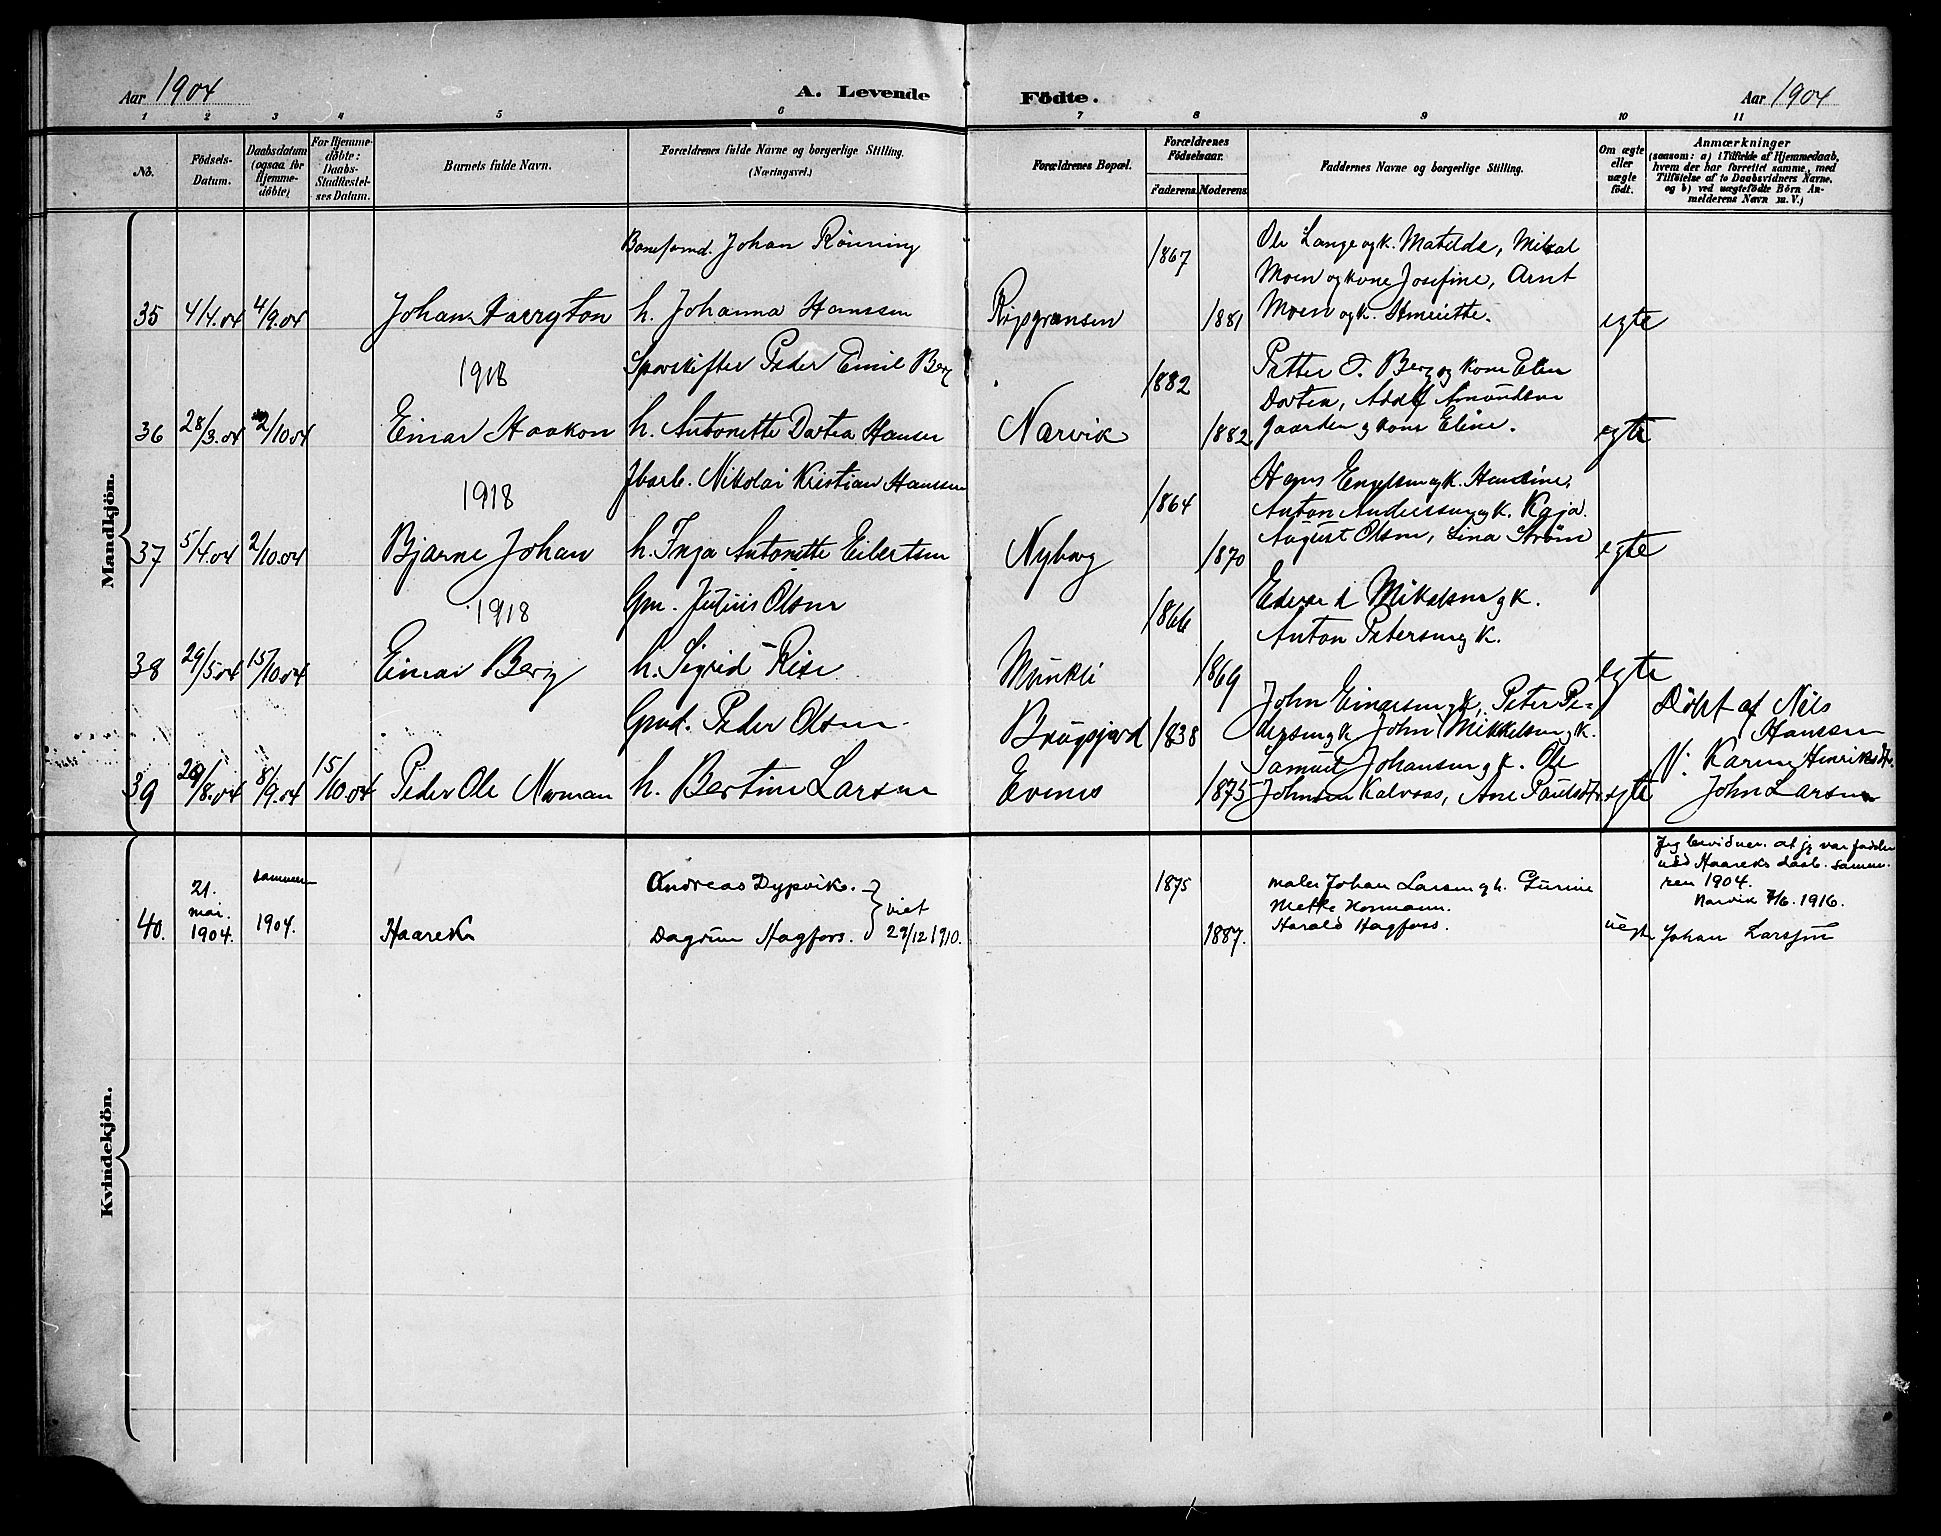 Aar 1904
A. Levende Födte.
Aar 1904
1 2 3 4 5 6 7 8 9 10 11
No.
Födsels-
Datum.
Daabsdatum
(ogsaa for
Hjemme-
döbte)
For Hjemme-
döbte:
Daabs-
Stadfæstel-
ses Datum.
Barnets fulde Navn.
Forældrenes fulde Navne og borgerlige Stilling.
(Næringsvei.)
Forældrenes Bopæl.
Forældrenes
Födselsaar.
Faderens. Moderens.
Faddernes Navne og borgerlige Stilling.
Om ægte
eller
uægte
födt.
Anmærkninger
(saasom: a) i Tilfælde af Hjemmedaab,
hvem der har forrettet samme, med
Tilföielse af to Daabsvidners Navne,
og b) ved uægtefödte Börn An-
melderens Navn m. V.)
Mandkjön.
Johan Rönning
1867
Ole Lange og k. Matilde, Mikal
Moen og kone Josefine, Arnt
35 4/4.04 4/9.04 Johan Harryton h. Johanna Hanssen
1881 Moen og k. egte
1918
Peder Emil Berg
1882
Petter J. Berg og kone Elen
Dortea, Adolf Amundsen
36 28/3.04 2/10.04 Einar Haakon h. Antonette Dortea Hansen
Narvik 1882 Gaarden og kone Eline. egte
1918
Jbarb. Nikolai Kristian Hanssen
1864
Hans Engelsen og k. Hansine,
Anton Anderssen og k. Kaja.
37 5/4.04 2/10.04 Bjarne Johan h. Inga Antonette Eibertsen
Nyborg 1870 August Olsen, Lina Ström egte
1918
Gm. Julius Olsen
1866
Edvard Mikalsen og k.
Anton Petersen og k.
38 29/5.04 15/10.04 Einar Berg h. Sigrid Rise
Munkli 1869 egte
Gmd. Peder Olsen
1838
John Einarsen og k, Peter Pe-
dersen og k John Mikkelsen og k.
Samuel Johansen og k. Ole
Döbt af Nils
Hanssen
V: Karen Henriksdtr.
39 29/8.04 8/9.04 15/10.04 Peder Ole Norman h. Bertine Larsen
Evenes 1875 Johnsen Kalvaas, Ane Paulsdtr. egte John Larsen
Kvindekjön.
40. 21. mai. 1904. sammen 1904. Haarek
Andreas Dypvik.
Dagrun Hagfors. viet 29/12 1910.
1875
1887.
maler Johan Larsen og h. Gurine
Mette Normann.
Harald Hagfors.
uegte
Jeg bevidner at jeg var fadder
ved Haareks daab sommer-
ren 1904.
Narvik 7/6. 1916.
Johan Larssen